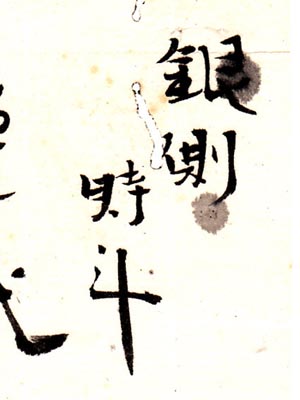 銀側
時斗